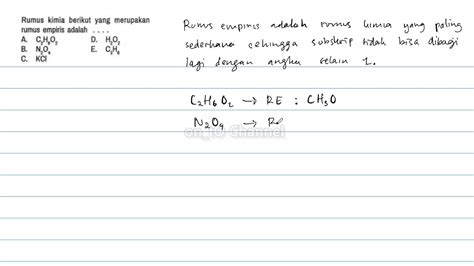 Rumus kimia berikut yang merupakan
rumus empiris adalah . . . .
A. C₂H₆O₂ D. H₂O₂
B. N₂O₄ E. C₂H₆
C. KCl
Rumus empiris adalah rumus kimia yang paling
sederhana sehingga subskrip tidak bisa dibagi
lagi dengan angka selain 1.
C₂H₆O₂ → RE : CH₃O
N₂O₄ → RE
on_to Channel